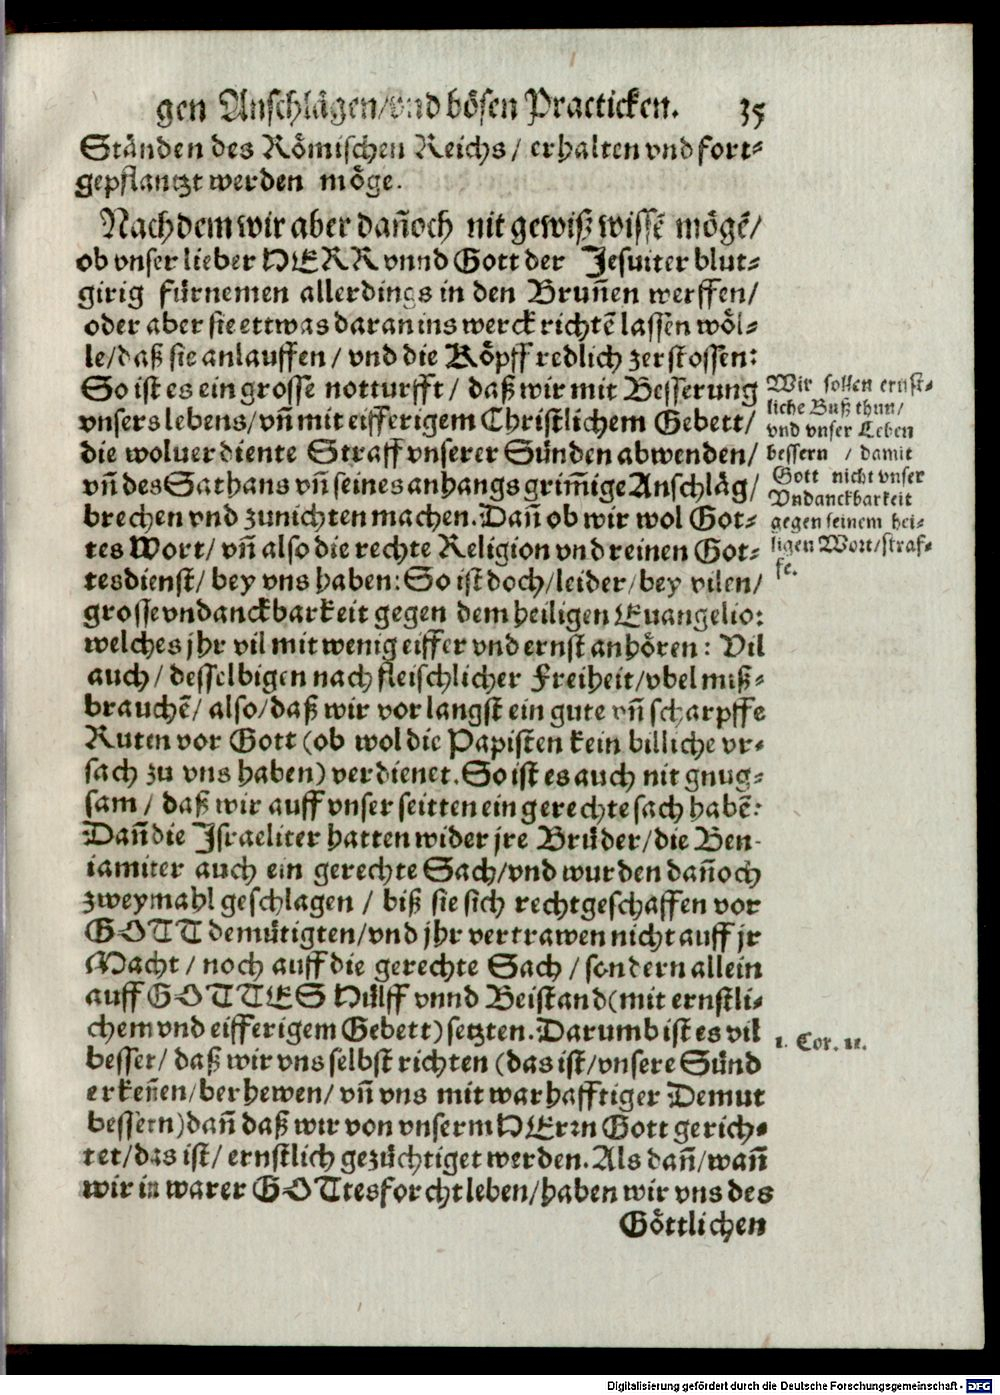 gen Anschlägen/vnd bösen Practicken. 35
Ständen des Römischen Reichs/ erhalten vnd fort⸗
gepflantzt werden möge.
Nach dem wir aber dañoch nit gewiß wissẽ mögẽ/
ob vnser lieber HERR vnnd Gott der Jesuiter blut⸗
girig fürnemen allerdings in den Bruñen werffen/
oder aber sie ettwas daran ins werck richtẽ lassen wöl⸗
le/daß sie anlauffen/ vnd die Köpff redlich zerstossen:
So ist es ein grosse notturfft/ daß wir mit Besserung
vnsers lebens/vñ mit eifferigem Christlichem Gebett/
die woluerdiente Straff vnserer Sünden abwenden/
vñ des Sathans vñ seines anhangs grim̃ige Anschläg/
brechen vnd zunichten machen. Dañ ob wir wol Got⸗
tes Wort/ vñ also die rechte Religion vnd reinen Got⸗
tesdienst/ bey vns haben: So ist doch/leider/bey vilen/
grosse vndanckbarkeit gegen dem heiligen Euangelio:
welches jhr vil mit wenig eiffer vnd ernst anhören: Vil
auch/ desselbigen nach fleischlicher Freiheit/vbel miß⸗
brauchẽ/ also/daß wir vor langst ein gute vñ scharpffe
Ruten vor Gott (ob wol die Papisten kein billiche vr⸗
sach zu vns haben) verdienet. So ist es auch nit gnug⸗
sam/ daß wir auff vnser seitten ein gerechte sach habẽ:
Dañ die Israeliter hatten wider jre Brüder/die Ben⸗
iamiter auch ein gerechte Sach/vnd wurden dañoch
zweymahl geschlagen/ biß sie sich rechtgeschaffen vor
GOTT demütigten/vnd jhr vertrawen nicht auff jr
Macht/ noch auff die gerechte Sach/sondern allein
auff GOTTES Hülff vnnd Beistand(mit ernstli⸗
chem vnd eifferigem Gebett) setzten. Darumb ist es vil
besser/ daß wir vns selbst richten (das ist/vnsere Sünd
erkeñen/berhewen/ vñ vns mit warhafftiger Demut
bessern)dañ daß wir von vnserm HErrn Gott gerich⸗
tet/das ist/ ernstlich gezüchtiget werden. Als dañ/wañ
wir in warer GOTtesforcht leben/haben wir vns des
Göttlichen
Wir sollen ernst⸗
liche Buß thun/
vnd vnser Leben
bessern/ damit
Gott nicht vnser
Vndanckbarkeit
gegen seinem hei⸗
ligen Wort/straf⸗
fe.
1. Cor. 11.
Digitalisierung gefördert durch die Deutsche Forschungsgemeinschaft - DFG